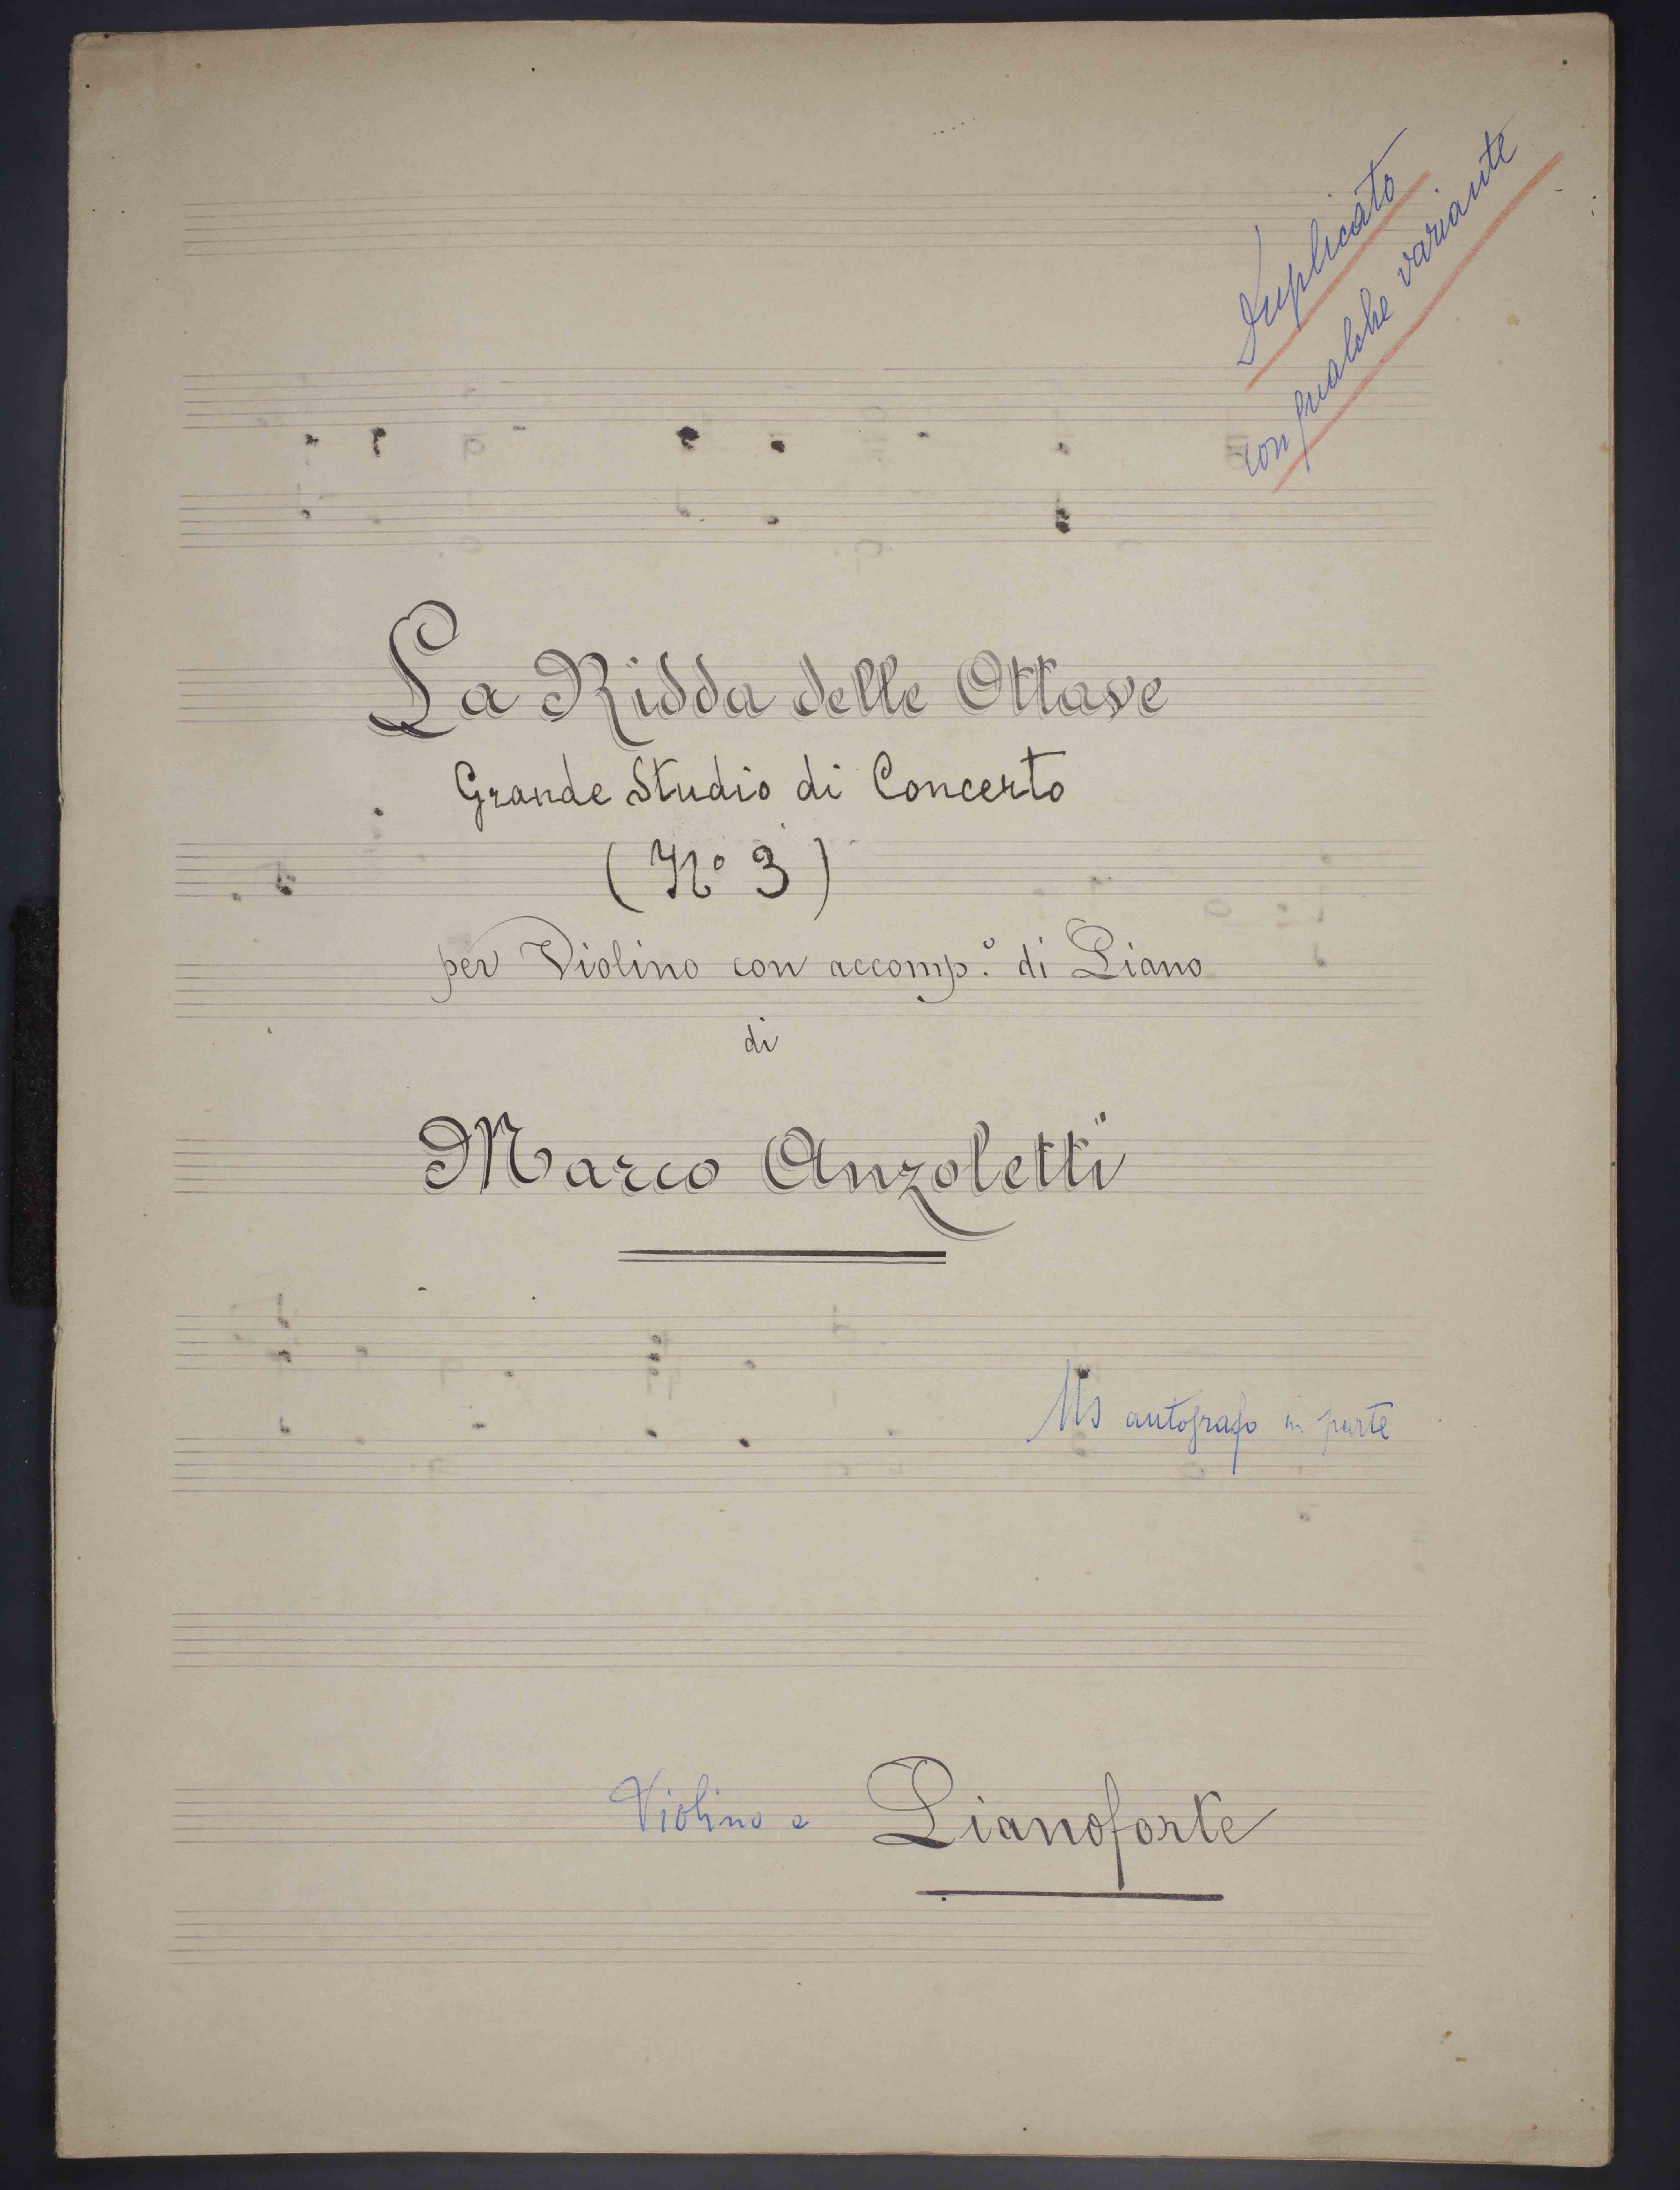 Duplicato
con qualche variante
La Ridda delle Ottave
Grande Studio di Concerto
(No 3)
per Violino con accomp.o di Piano
di
Marco Anzoletti
Ms autografo in parte
Violino e Pianoforte